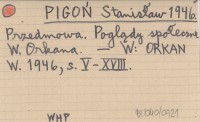 PIGOŃ Stanisław 1946.
Przedmowa. Poglądy społeczne
W. Orkana. — W: ORKAN
W. 1946, s. V-XVIII.
WHP